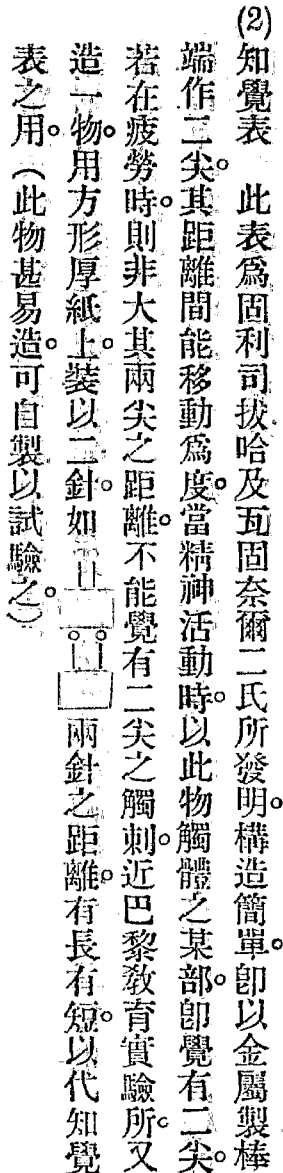 (2)知覺表　此表爲固利司拔哈及瓦固奈爾二氏所發明。構造簡單。卽以金屬製棒
端作二尖。其距離間能移動爲度。當精神活動時。以此物觸體之某部。卽覺有二尖。
若在疲勞時。則非大其兩尖之距離。不能覺有二尖之觸刺。近巴黎敎育實驗所。又
造一物。用方形厚紙上。裝以二針。如兩針之距離。有長有短。以代知覺
表之用。（此物甚易造。可自製以試驗之。）